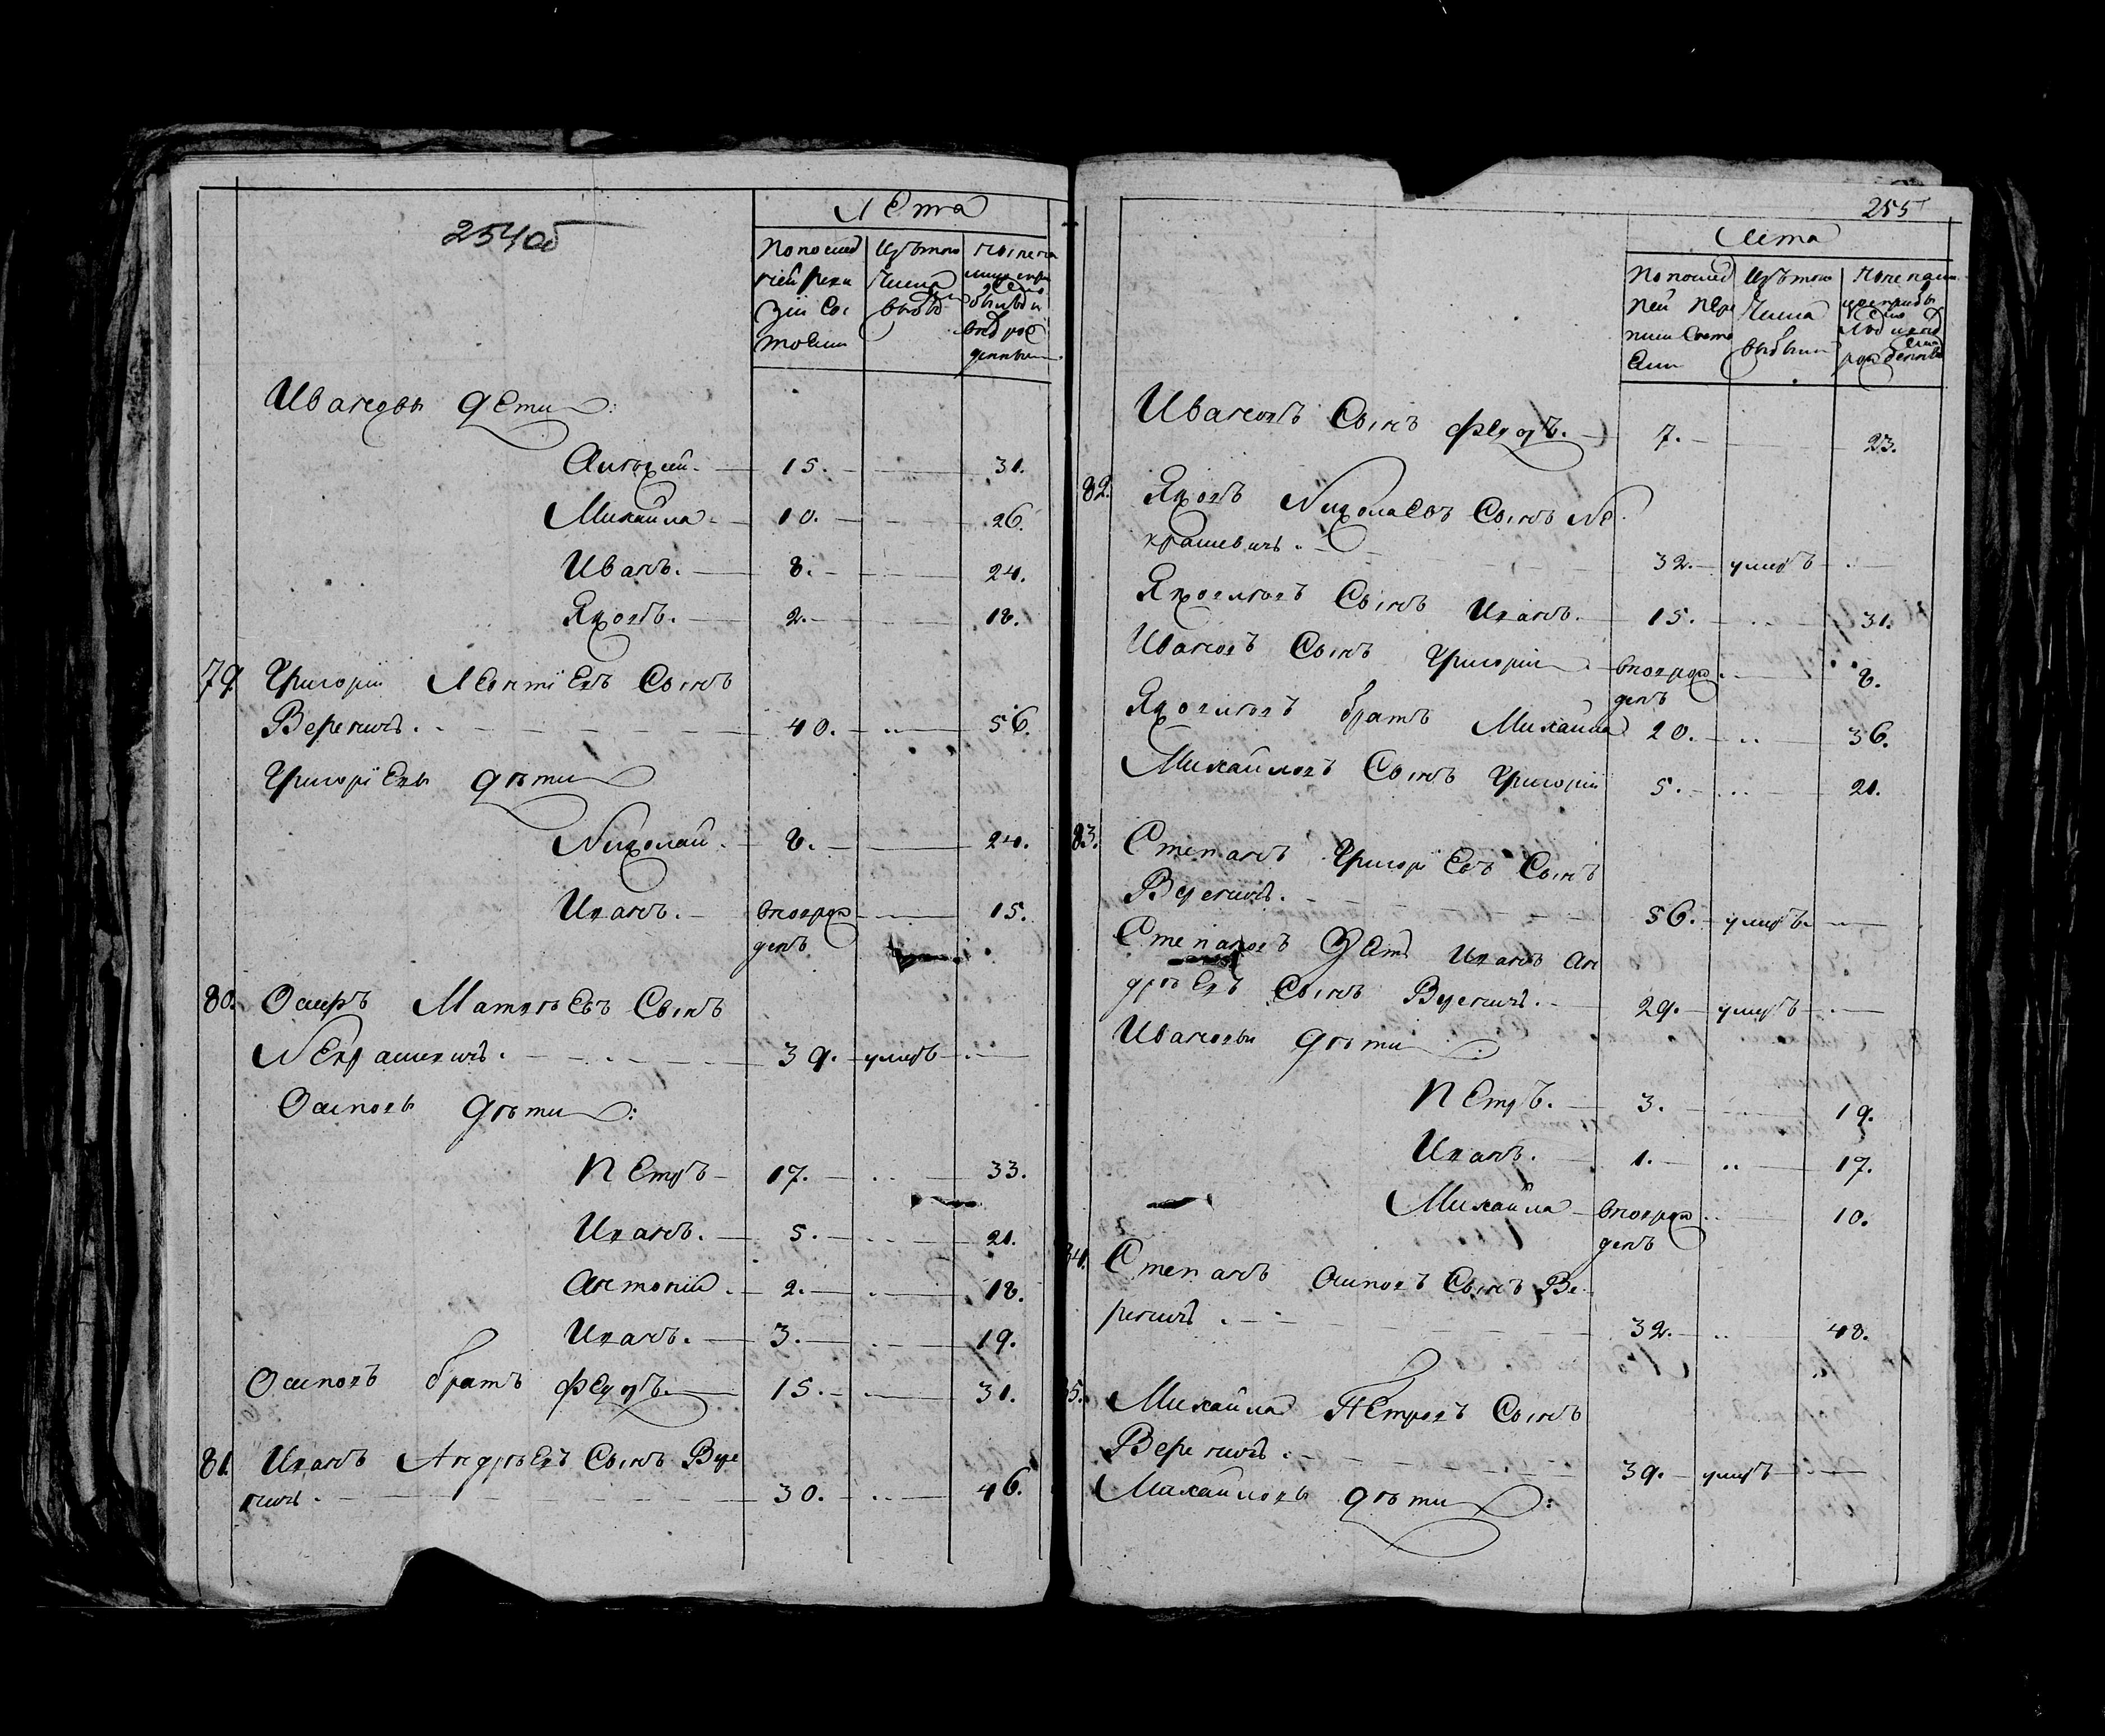 254об
Лета
по послед
ней реви
зіи со
тояли
изъ того
числа
выбы
ныне на
лицо
Ивановы дети:
Алексей. 15. 31.
Михайла. 10. 26.
Иванъ. 8. 24.
Яковъ. 2. 18.
79. Григорій Леонтіевъ Сынъ
Вереничъ. 40. 56.
Григоріевы дѣти
Николай. 8. 24.
Иванъ. вновърож 15.
денъ
80. Осипъ Матвѣевъ Сынъ
Некрашевичъ. 39. умеръ
Осиповы дѣти:
Петръ 17. 33.
Иванъ. 5. 21.
Антоній. 2. 18.
Иванъ. 3. 19.
Осиповъ братъ Федоръ. 15. 31.
81. Иванъ Андрѣевъ Сынъ Вере
ничъ. 30. 46.
255
Лета
по послед
ней пере
писи состо
яли
изъ того
числа
выбыли
Ивановъ Сынъ Федоръ. 7. 23.
82. Яковъ Николаевъ Сынъ Не
крашевичъ. 32. умеръ
Яковлевъ Сынъ Иванъ. 15. 31.
Ивановъ Сынъ Григорій вновърож 8.
денъ
Яковлевъ братъ Михайла 20. 36.
Михайловъ Сынъ Григорій 5. 21.
83. Степанъ Григоріевъ Сынъ
Вереничъ. 56. умеръ
Степановъ Зеть Иванъ Ан
дрѣевъ Сынъ Вереничъ. 29. умеръ
Ивановы дѣти
Петръ. 3. 19.
Иванъ. 1. 17.
Михайла вновърож 10.
денъ
84. Степанъ Осиповъ Сынъ Ве
реничъ. 32. 48.
85. Михайла Петровъ Сынъ
Вереничъ. 39. умеръ
Михайловы дѣти: